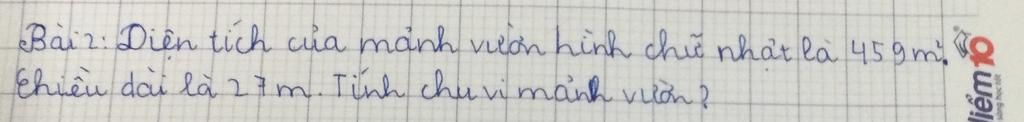 Bài 2: Diện tích của mảnh vườn hình chữ nhật là 459m².
Chiều dài là 27m. Tính chu vi mảnh vườn?
điểm 10